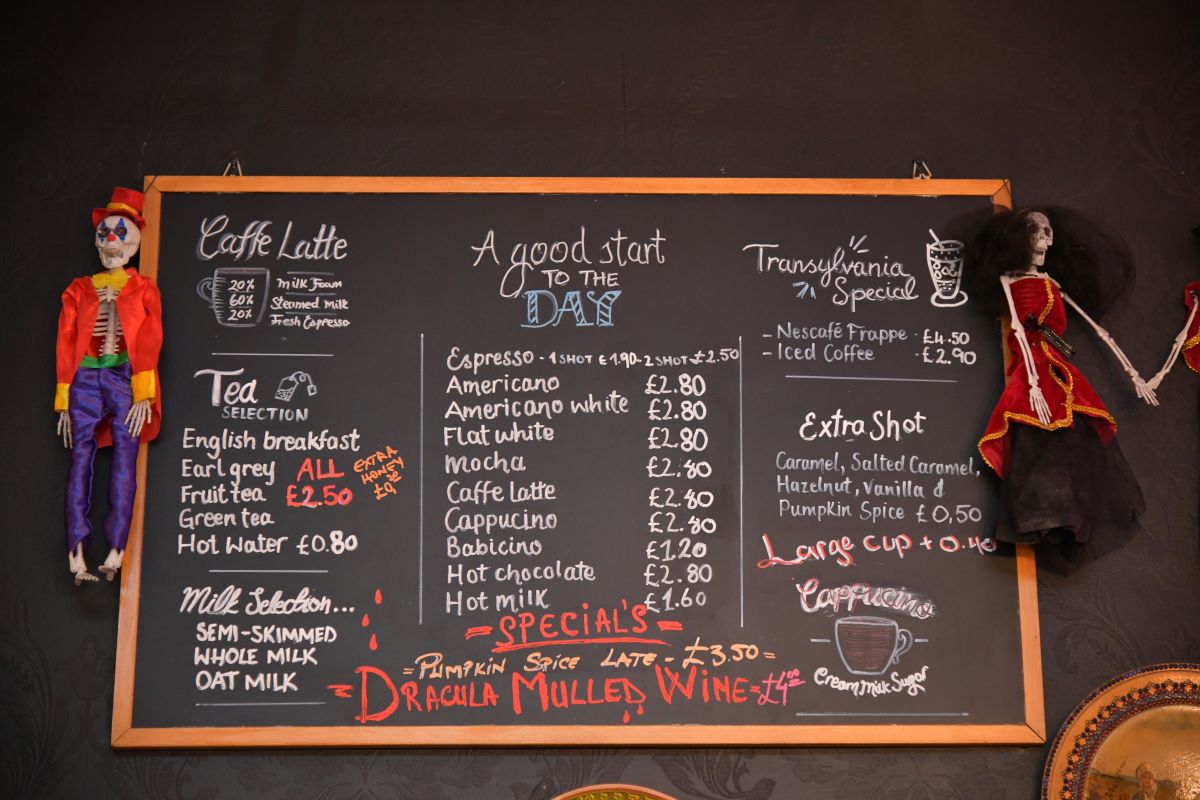 Caffe Latte
20% Milk Foam
60% Steamed Milk
20% Fresh Espresso
Tea
SELECTION
English breakfast
Earl grey
Fruit tea
Green tea
ALL
£2.50
EXTRA
HONEY
Hot Water £0.80
Milk Selection...
SEMI-SKIMMED
WHOLE MILK
OAT MILK
A good start
TO THE
DAY
Espresso - 1 SHOT £1.90 - 2 SHOT £2.50
Americano £2.80
Americano white £2.80
Flat white £2.80
Mocha £2.80
Caffe latte £2.80
Cappucino £2.80
Babicino £1.20
Hot chocolate £2.80
Hot milk £1.60
=SPECIAL'S=
=PUMPKIN SPICE LATE - £3.50=
=DRACULA MULLED WINE=£4.00
Transylvania
Special
- Nescafé Frappe £4.50
- Iced Coffee £2.90
Extra Shot
Caramel, Salted Caramel,
Hazelnut, Vanilla &
Pumpkin Spice £0,50
LARGE CUP + 0.40
Cappucino
Cream Milk Sugar